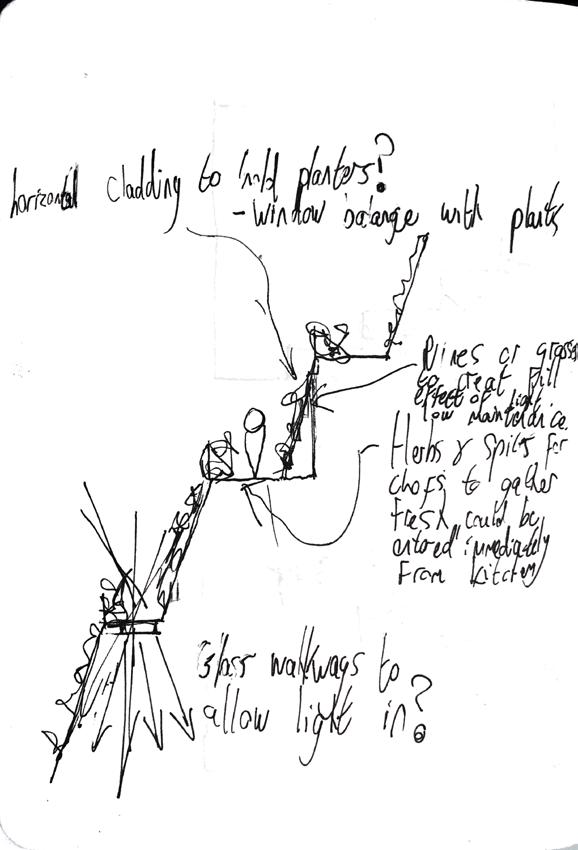 horizontal cladding to hold planters?
- Window balance with plants
Vines or grasses
to creat fill
effect of light
low maintence.
Herbs & Spices for
chefs to gather
Fresh could be
entered immediately
From kitchen
Glass walkways to
allow light in?